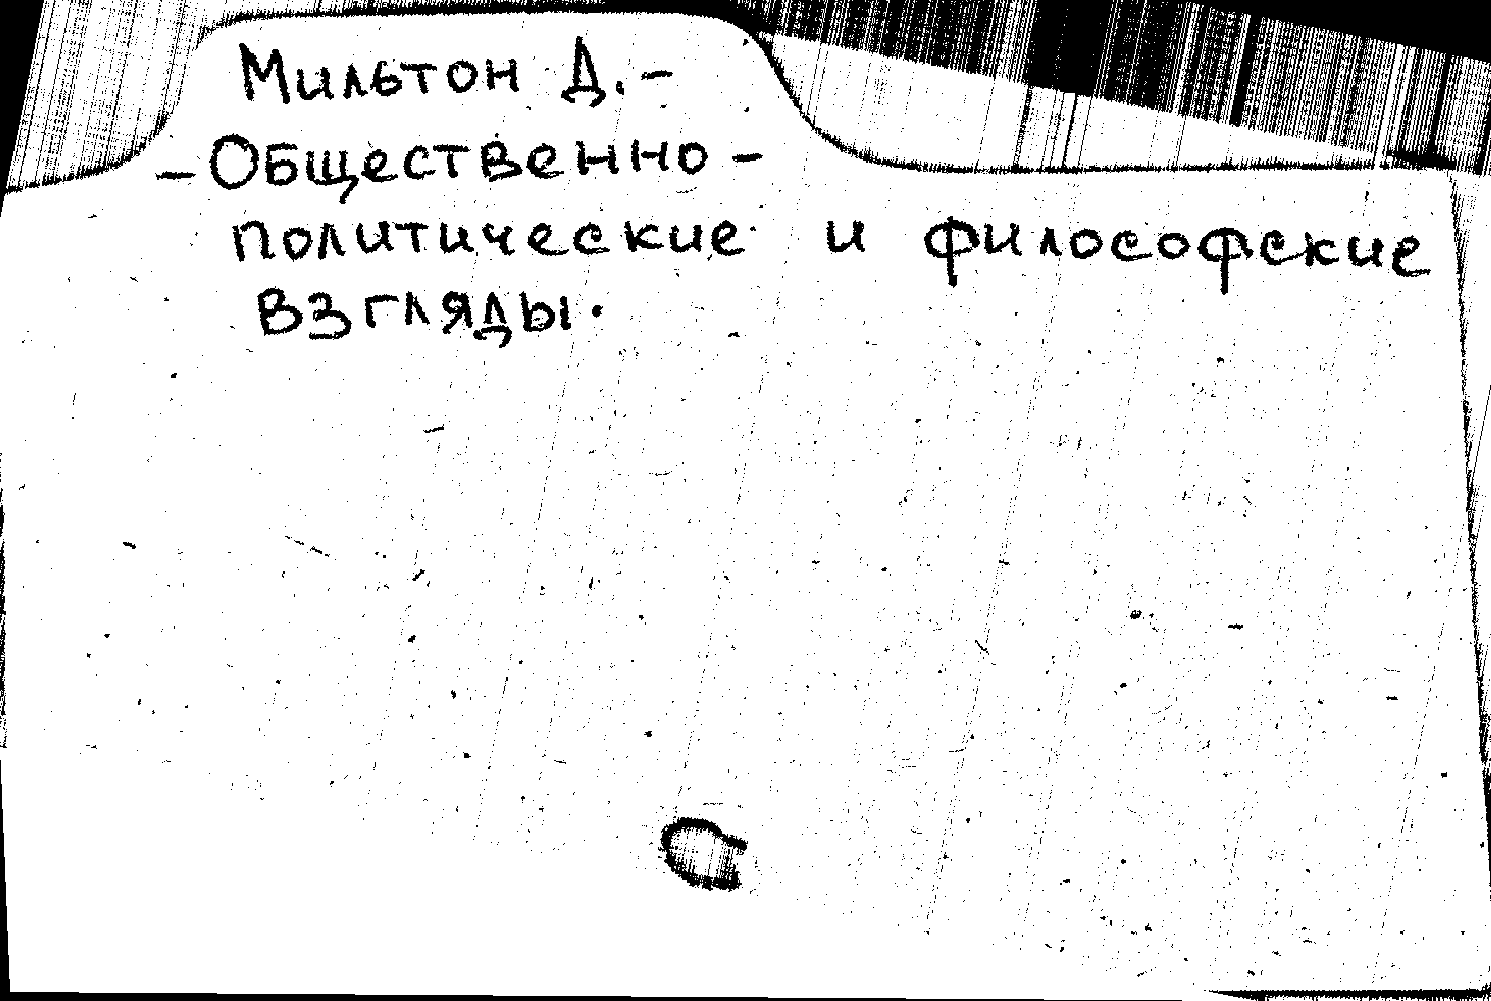 Мильтон Д.-
-Общественно-
политические и философские
взгляды.